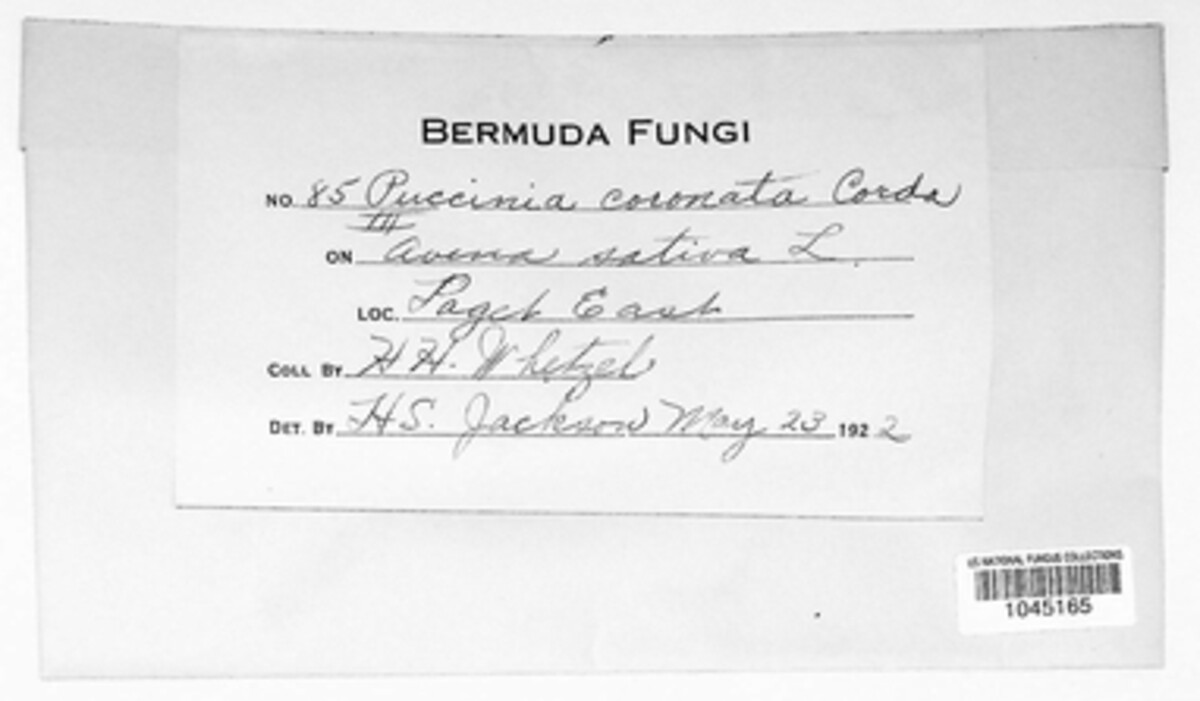 BERMUDA FUNGI
NO. 85 Puccinia coronata Corda
III
ON Avena sativa L.
LOC. Paget East
COLL BY H H. Whetzel
DET. BY H S. Jackson May 23 1922
US NATIONAL FUNGUS COLLECTIONS
1045165